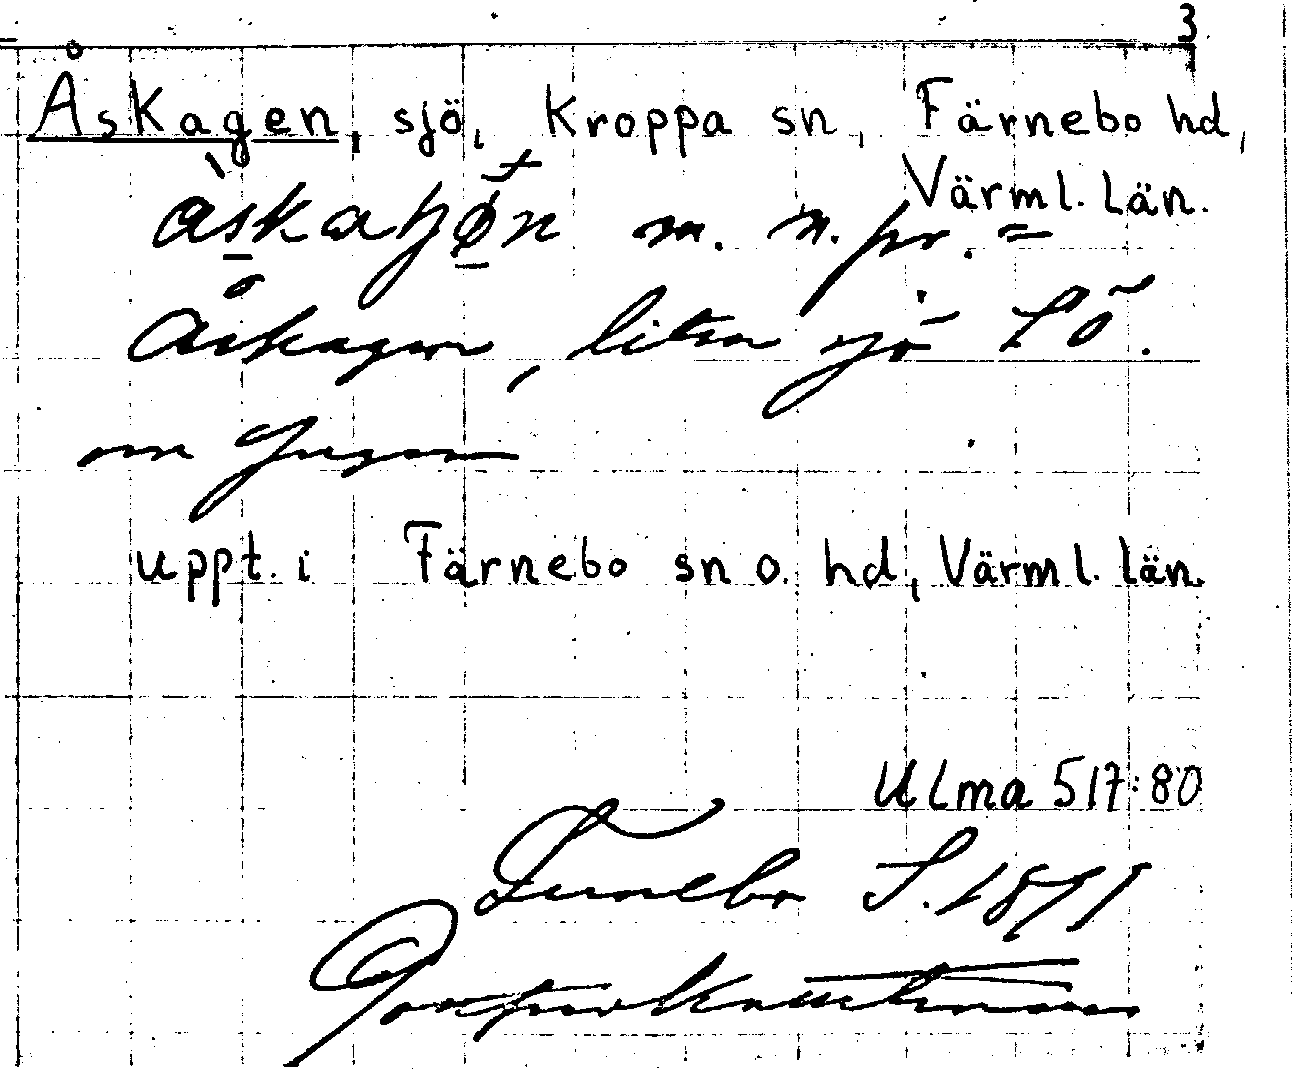 3
Åskagen, sjö, Kroppa sn, Färnebo hd,
Värml. län.
m. n. pr. =
Åskagen, liten sjö S Ö.
om
uppt. i Färnebo sn o. hd, Värml. län.
Ulma 517:80
Fernebo S. 18